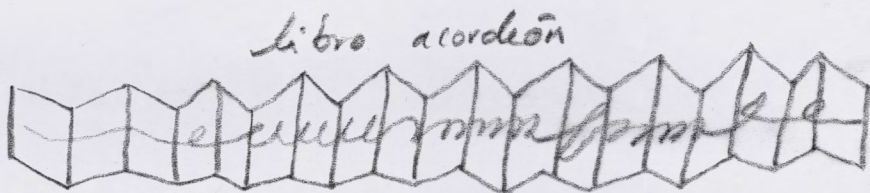 libro acordeón